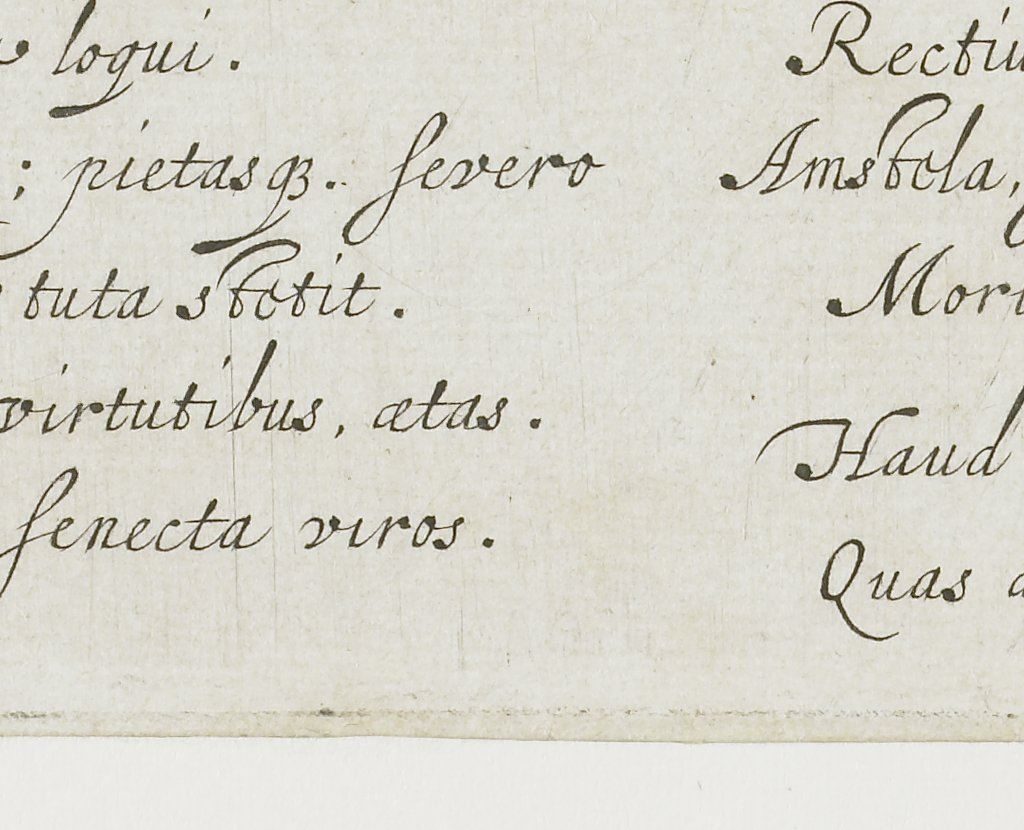 loqui.
; pietasq3. severo
tuta stetit.
virtutibus, ætas.
senecta viros.
Amstela,
Haud
Quas